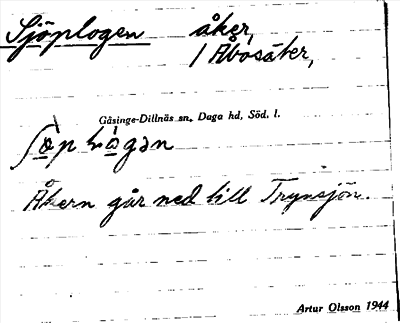 Sjöplogen åker,
1 Åbosäter,
Gåsinge-Dillnäs sn. Daga hd, Söd. l.
Åkern går ned till Trynsjön.
Artur Olsson 1944